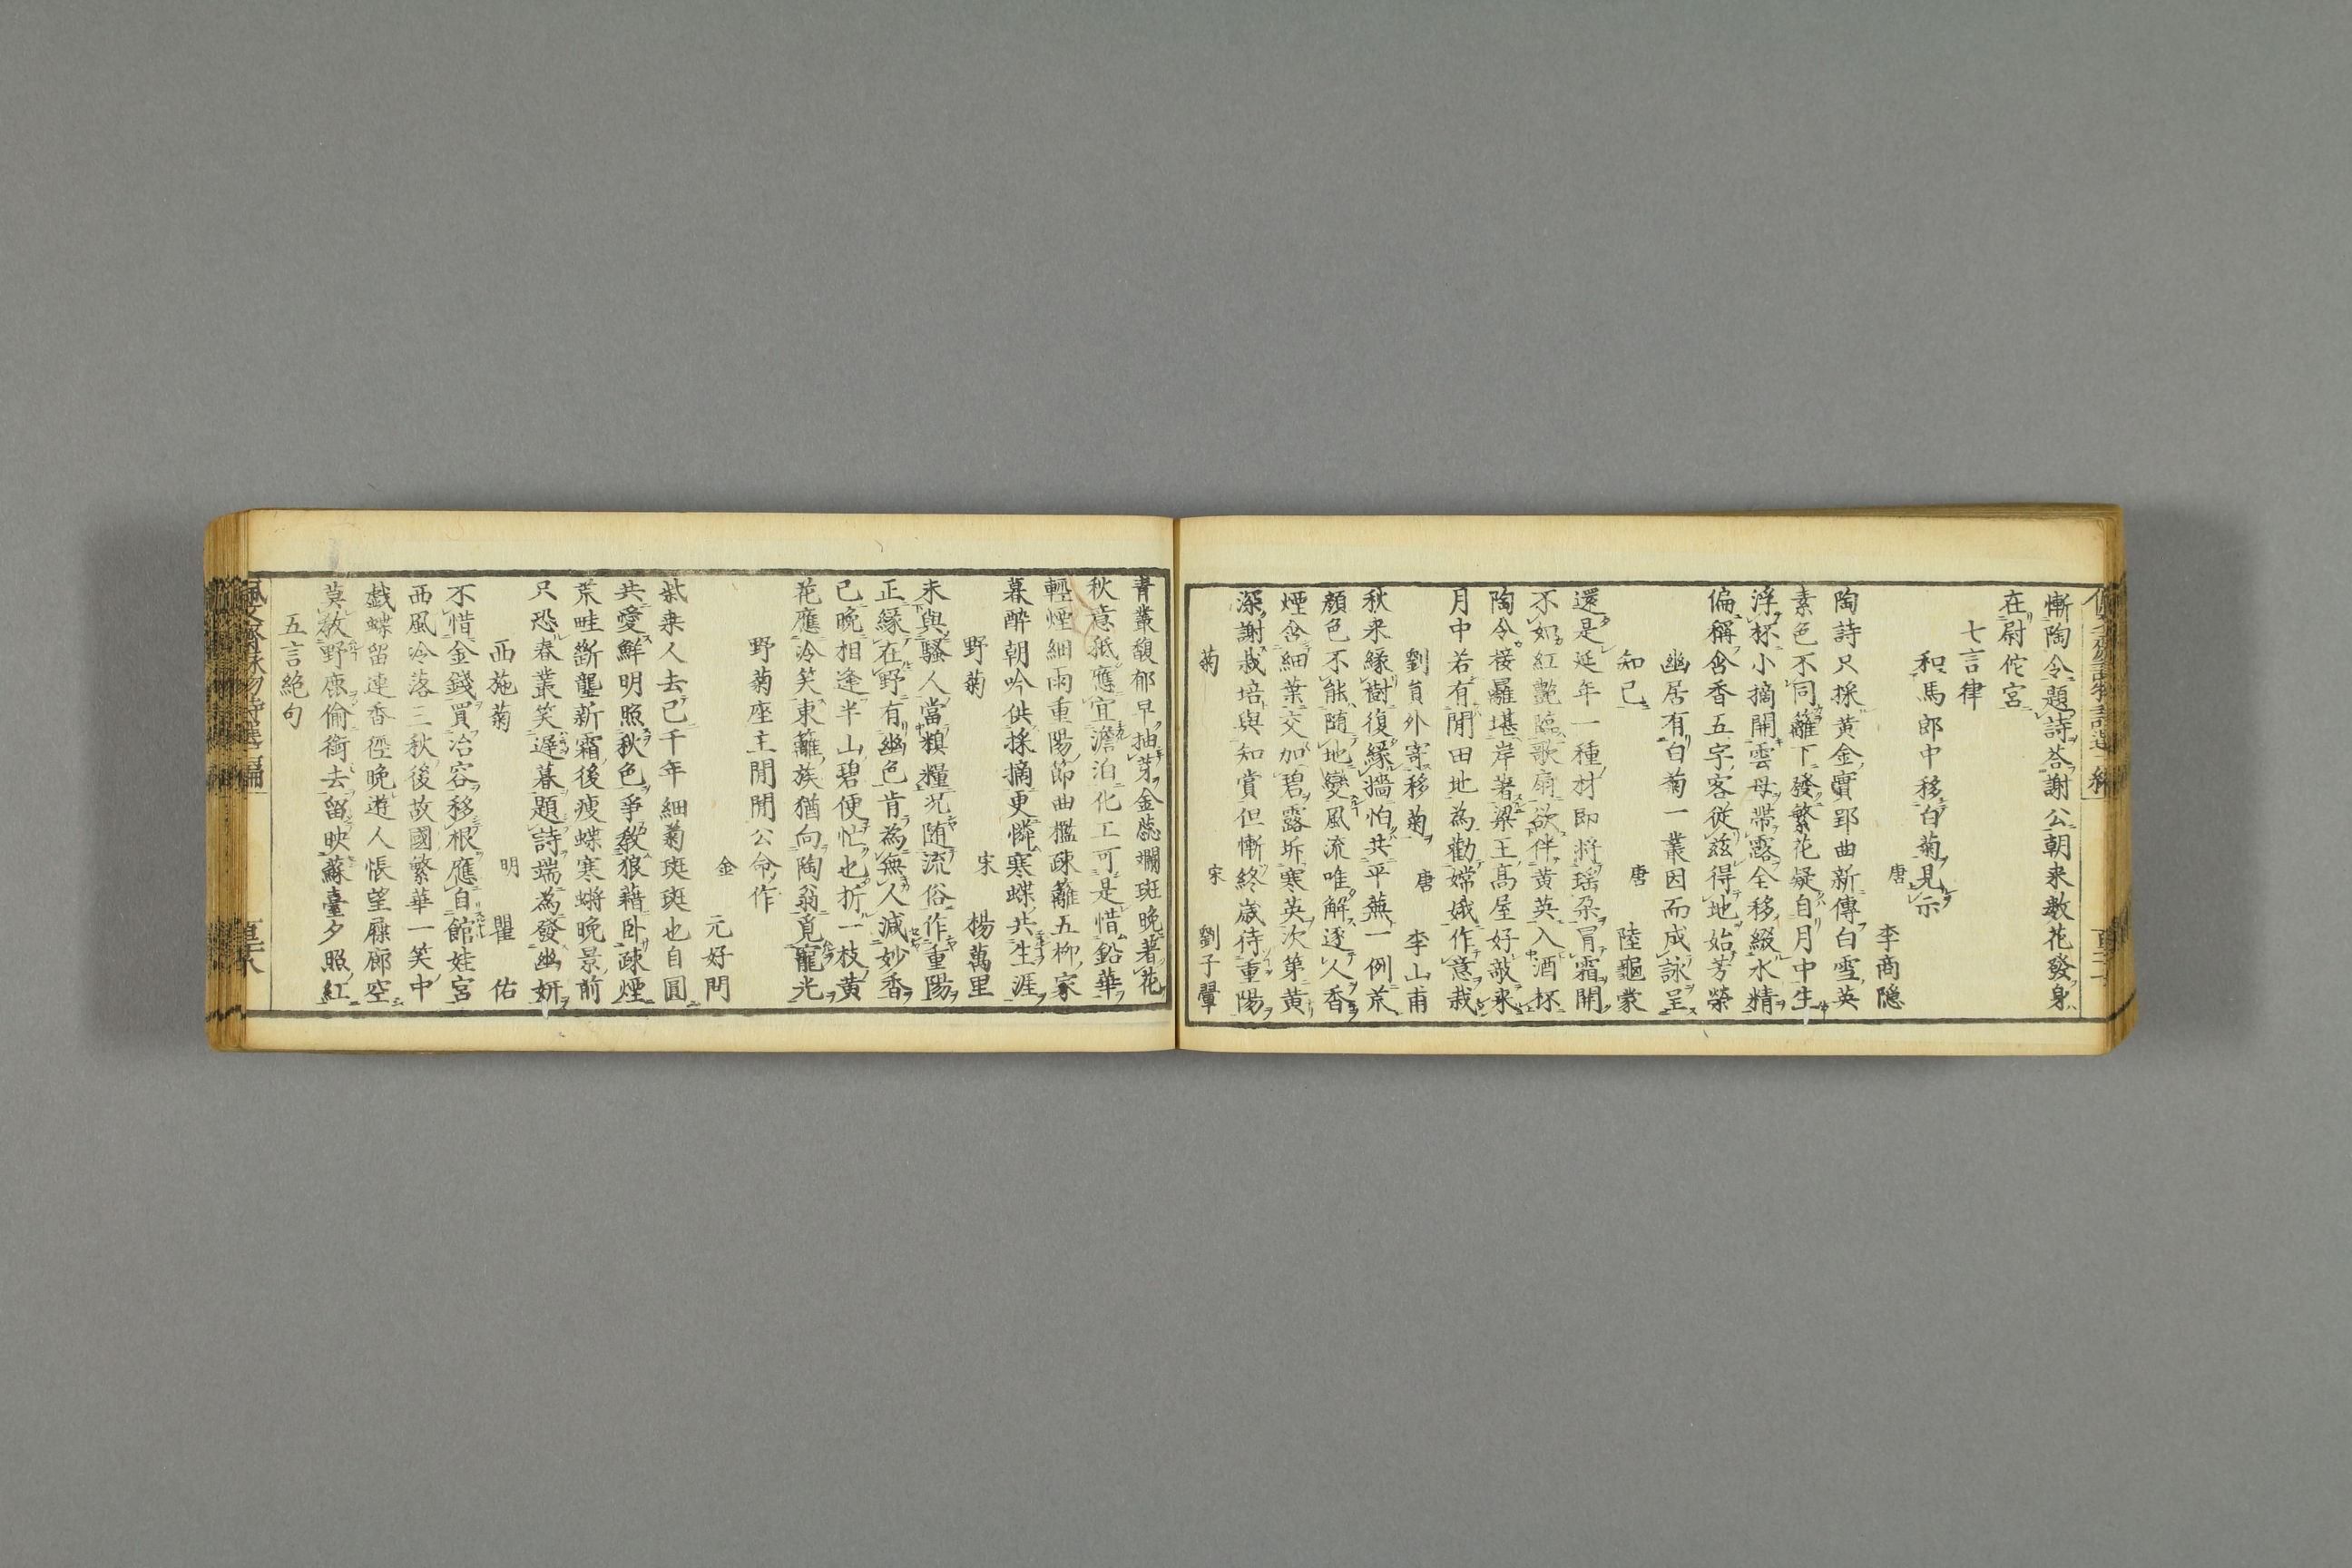 慚陶令題詩荅謝公朝来数花發身
在尉佗宮
七言律
和馬郎中移白菊見示
唐 李商隠
陶詩只採黄金實郢曲新傳白雪英
素色不同籬下發繁花疑自月中生
浮杯小摘開雲母帯露全移綴水精
偏稱含香五字客從兹得地始芳榮
幽居有白菊一叢因而成詠呈
知已
唐 陸龜蒙
還是延年一種材即将瑶朶冐霜開
不如紅艶臨歌扇欲伴黄英入酒杯
陶令接䍦堪岸著梁王高屋好敲来
月中若有閒田地為勸嫦娥作意栽
劉員外寄移菊
唐 李山甫
秋来縁樹復縁牆怕共平蕪一例荒
顔色不能随地變風流唯解逐人香
煙含細葉交加碧露坼寒英次第黄
深謝栽培與知賞但慚終歳待重陽
菊
宋 劉子翬
青叢馥郁早抽芽金蕊斕斑晩著花
秋意秪應宜澹泊化工可是惜鉛華
輕煙細雨重陽節曲檻疎籬五柳家
暮醉朝吟供採摘更憐寒蝶共生涯
野菊
宋 楊萬里
未與騒人當糗糧况随流俗作重陽
正縁在野有幽色肯為無人減妙香
已晩相逢半山碧便忙也折一枝黄
花應冷笑東籬族猶向陶翁覓寵光
野菊座主閒閒公命作
金 元好問
柴桒人去已千年細菊斑斑也自圓
共愛鮮明照秋色爭教狼藉卧疎煙
荒畦断壟新霜後瘦蝶寒螿晩景前
只恐春叢笑遲暮題詩端為發幽妍
西施菊
明 瞿佑
不惜金錢買冶容移根應自館娃宮
西風冷落三秋後故國繁華一笑中
戯蝶留連香徑晩遊人悵望屧廊空
莫教野鹿偷銜去留映蘇臺夕照紅
五言絶句